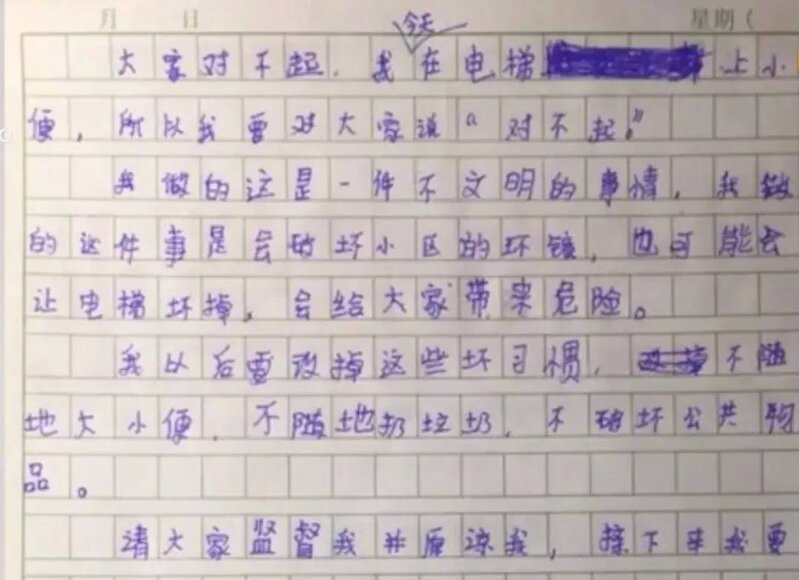 月 日 星期（
今天
大家对不起．我在电梯上小
便，所以我要对大家说“对不起”
我做的这是一件不文明的事情，我做
的这件事是会破坏小区的环境，也可能会
让电梯坏掉，会给大家带来危险。
我以后要改掉这些坏习惯，不随
地大小便．不随地扔垃圾，不破坏公共物
品。
请大家监督我并原谅我，接下来我要